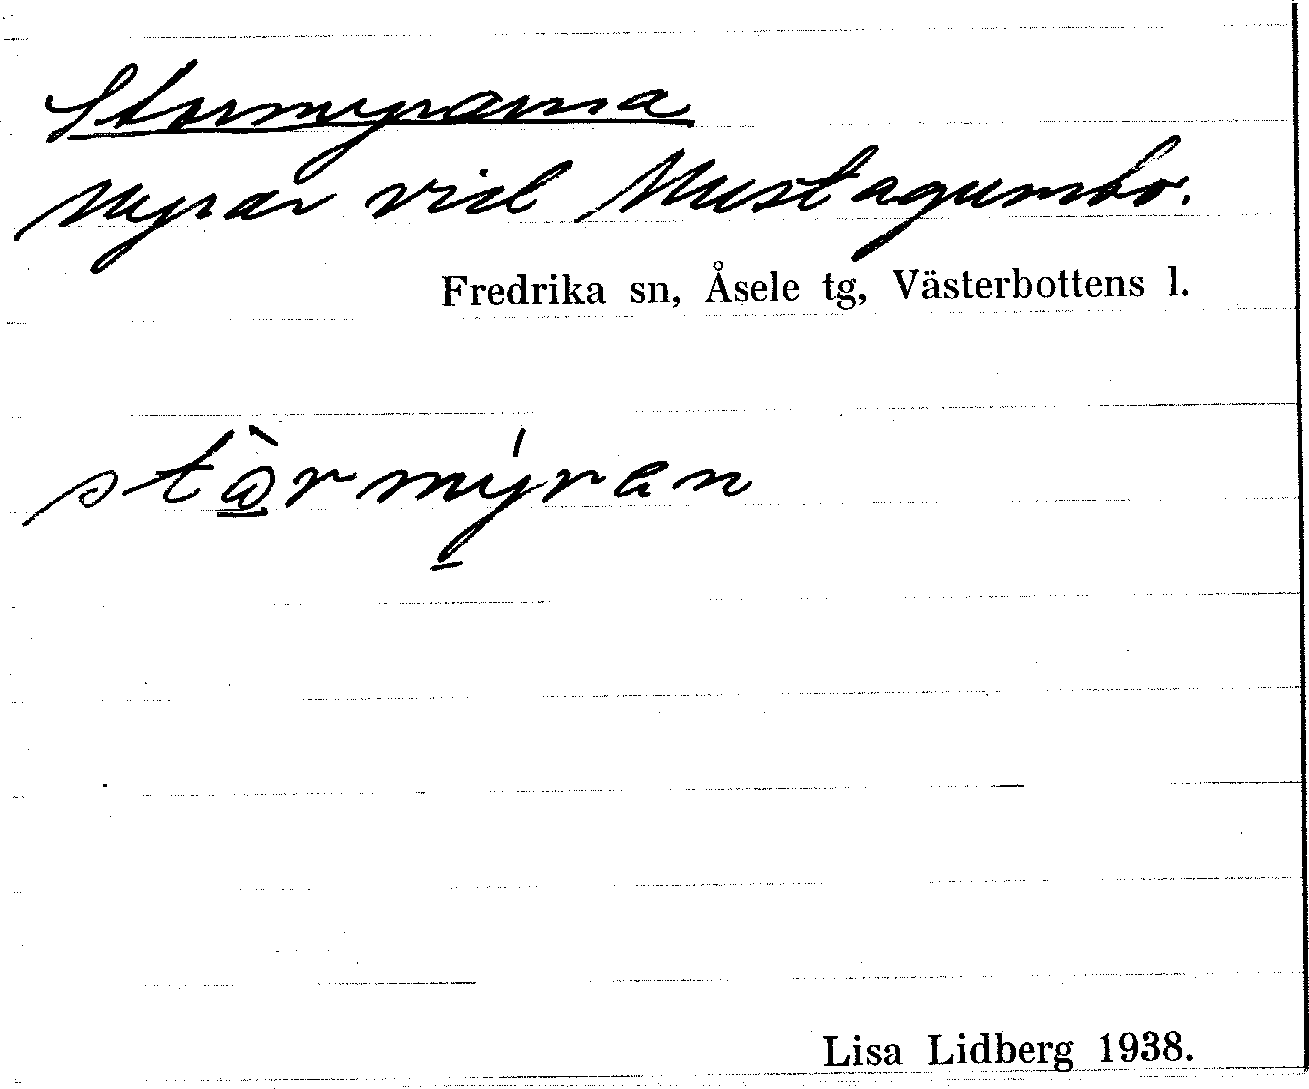 Stormyrarna
Myrar vid Mustagumbo.
Fredrika sn, Åsele tg, Västerbottens l.
stòrmýran
Lisa Lidberg 1938.